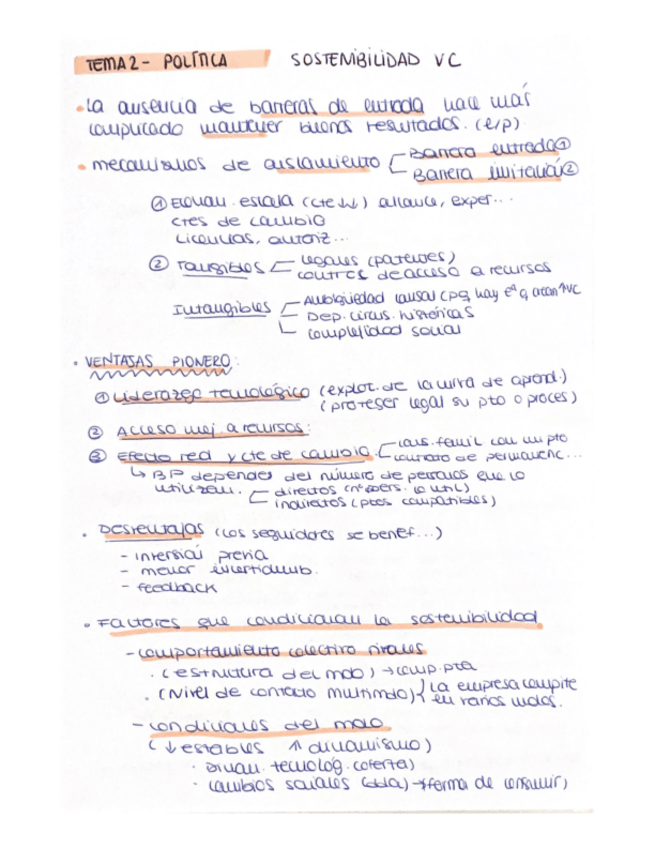 TEMA 2 - POLÍTICA SOSTENIBILIDAD VC
• La ausencia de barreras de entrada hace más
complicado mantener buenos resultados. (e/p)
• mecanismos de aislamiento Barrera entrada ①
Barrera imitación ②
① Econom. escala (cte ↓) alcance, exper...
ctes de cambio
Licencias, autoriz...
② Tangibles legales (patentes)
costes de acceso a recursos
Intangibles Ambigüedad causal (pq hay
Dep. circus. históricas
complejidad social
• VENTAJAS PIONERO:
① Liderazgo tecnológico (explot. de la curva de aprend.)
(proteger legal su pto o proces)
② Acceso mej. a recursos:
③ Efecto red y cte de cambio. con un pto
contrato de permanenc...
↳ BP depende del número de personas que lo
utilizan. directos (nº pers. lo util)
indirectos (ptos compatibles)
• Desventajas (Los seguidores se benef...)
- inversión previa
- menor incertidumb.
- feedback
• Factores que condicionan la sostenibilidad
- comportamiento colectivo rivales
• (estructura del mdo) → comp. pta
• (Nivel de contacto multimdo) La empresa compite
en varios mdos.
- condiciones del mdo
(↓ estables ↑ dinamismo)
• dinam. tecnológ. (oferta)
• cambios sociales (dda) → (forma de consumir)